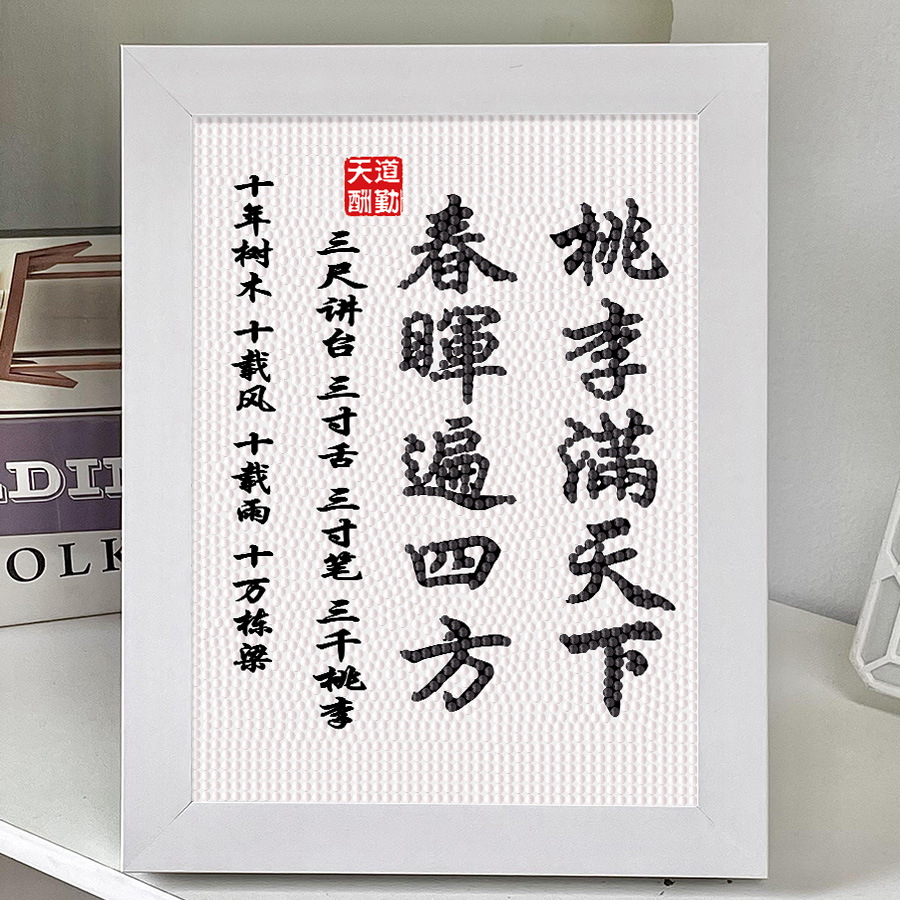 桃李满天下
春暉遍四方
天道酬勤
三尺讲台 三寸舌 三寸笔 三千桃李
十年树木 十载风 十载雨 十万栋梁
ADI
OLK